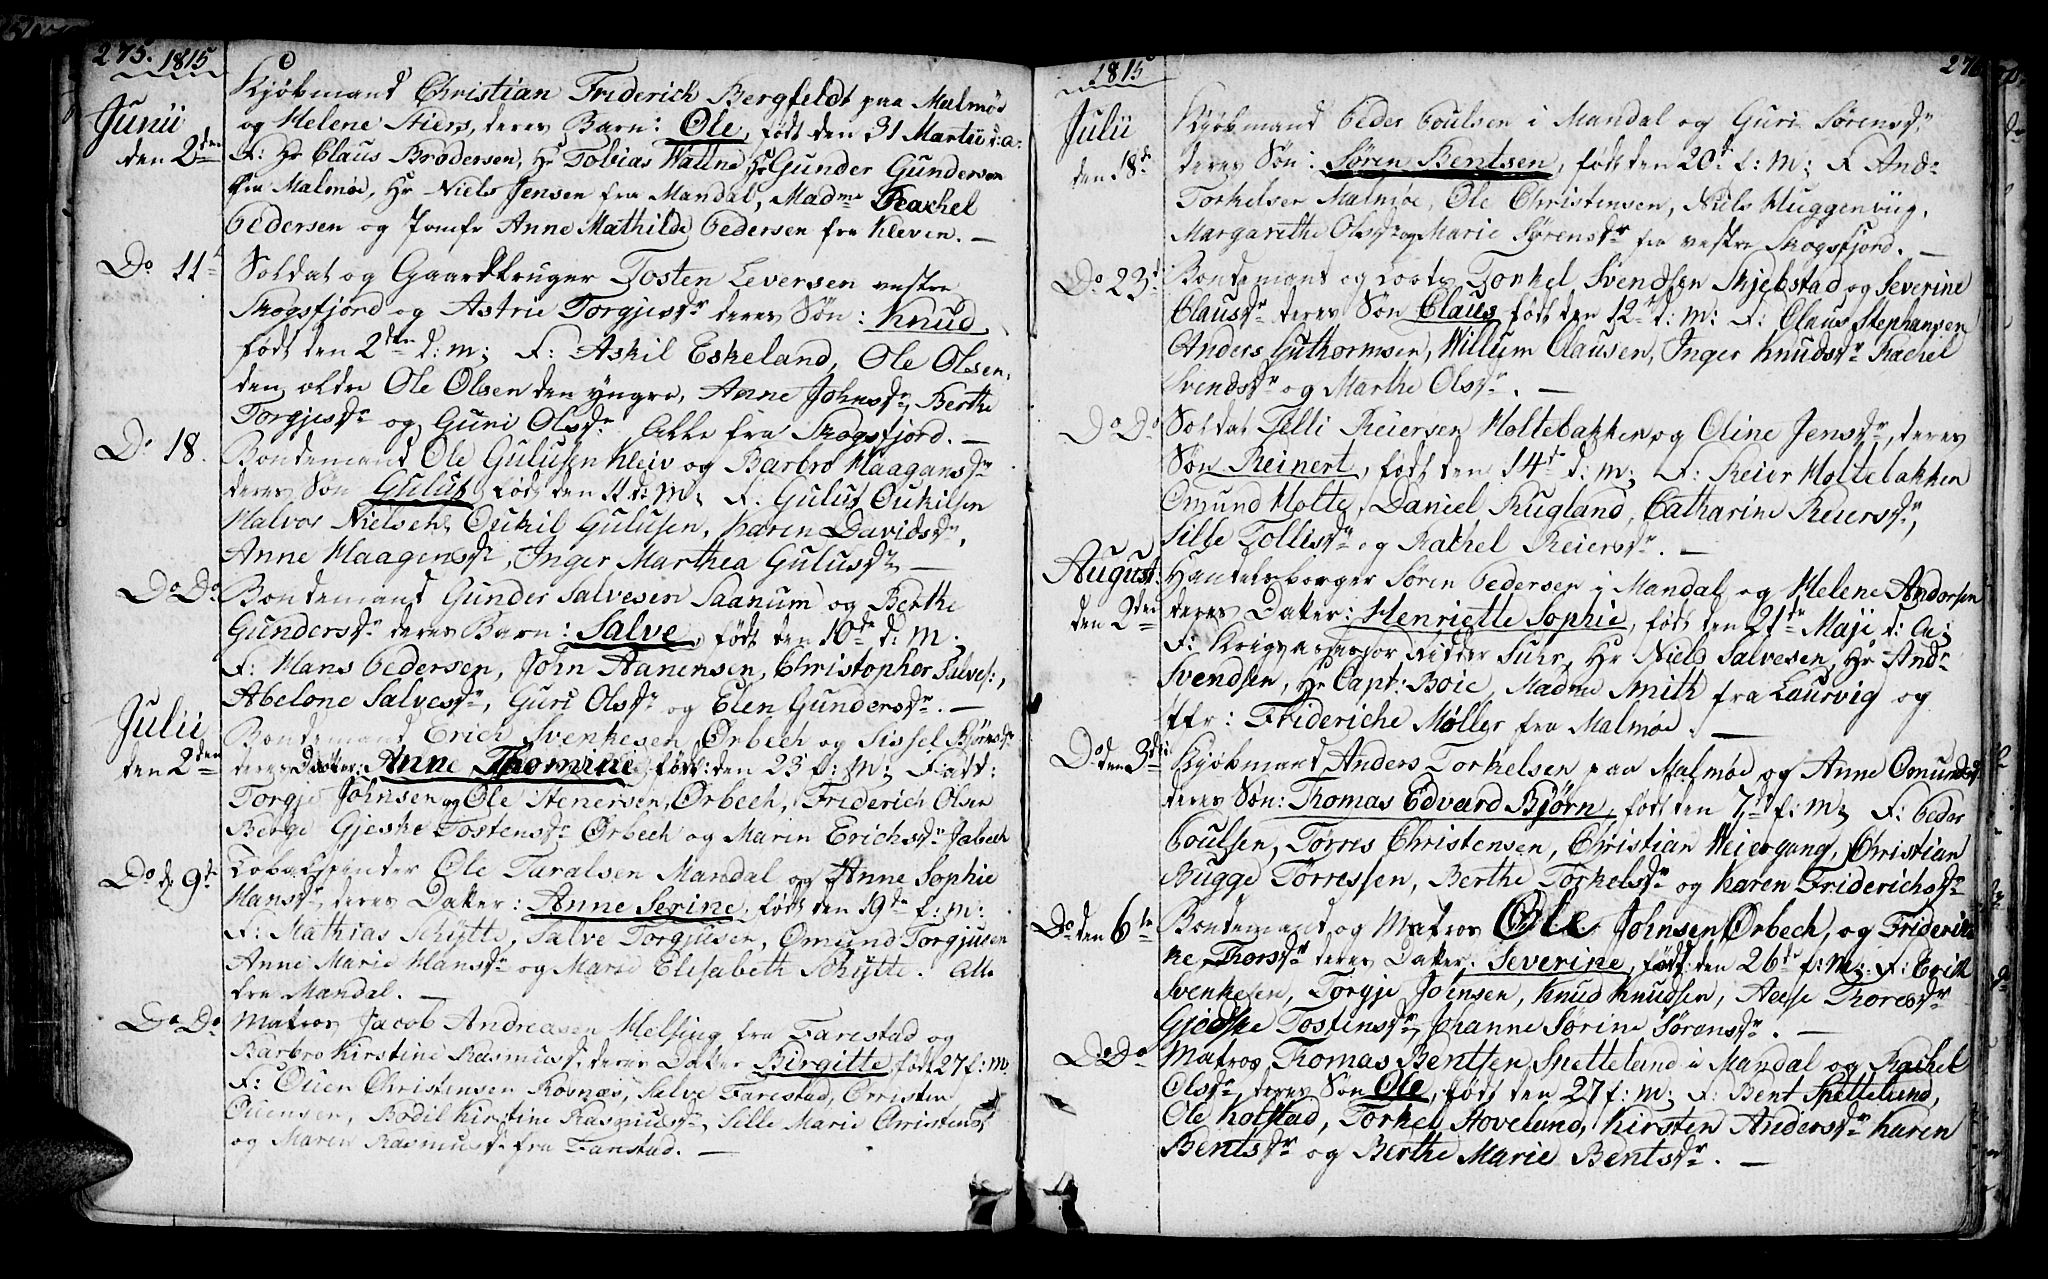 275. 1815
Junii
den 2den
Kjøbmand Christian Friderich Bergfeldt paa Malmøe
og Helene Aiers, deres Barn: Ole, født den 31 Martii d: a:
F: Hr Claus Brodersen, Hr Tobias Wattne Hr Gunder Gundersen
fra Malmøe, Hr Niels Jensen fra Mandal, Madme Rachel
Pedersen og Jomfr Anne Mathilde Pedersen fra Kleven. —
Do 11te
Soldat og Gaardbruger Tosten Leversen vestre
Skogsfjord og Astrie Torgjesdr deres Søn: Knud
født den 2den d: m: F: Askil Eskeland, Ole Olsen
den ældre Ole Olsen den yngre, Anne Johnsdr, Berthe
Torgjesdr og Guri Olsdr. Alle fra Skogsfjord. —
Do 18.
Bondemand Ole Gulusen Kleiv og Barbro Haagensdr
deres Søn Gulus, født den 11 d: M: F: Gulus Oukilsen
Halvor Nielsen, Oukil Gulusen, Karen Davidsdr,
Anne Haagensdr, Inger Marthea Gulusdr —
Do Do
Bondemand Gunder Salvesen Saanum og Berthe
Gundersdr deres Barn: Salve, født den 10de d: M:
F: Hans Pedersen, John Aanensen, Christopher Salves:,
Abelone Salvesdr, Guri Olsdr og Elen Gundersdr. —
Julii
den 2den
Bondemand Erich Svenkesen Ørbech og Sissel Biørnsdr
deres Datter: Anne Thomine, født: den 23 f: m: Fadd:
Torgje Johnsen og Ole Stenersen, Ørbech, Friderich Olsen
Berge Gjeske Tostensdr Ørbech og Maren Erichsdr Jabech
Do d 9de
Tobaksspinder Ole Taralsen Mandal og Anne Sophie
Hansdr, deres Datter: Anne Serine, født den 19de f: m:
F: Mathias Schytte, Salve Torgjusen, Omund Torgjusen
Anne Marie Hansdr og Marie Elisabeth Schytte. Alle
fra Mandal. —
Do Do
Matros Jacob Andreasen Helsing fra Farestad og
Barbro Kirstine Rasmusd. deres Datter Birgitte, født 27 f: m,
F: Ouen Christensen Rosnæs, Salve Farestad, Christen
Ouensen, Bodil Kirstine Rasmusdr, Sille Marie Christensd
og Maren Rasmusdr fra Farstad. —
1815 276
Julii
den 18de
Kjøbmand Peder Poulsen i Mandal og Guri Sørensdr
deres Søn: Søren Bentsen, født den 20de f: m: F And:
Torkelsen Malmøe, Ole Christensen, Niels Huggenviig,
Margarethe Olsdr og Marie Sørensdr fra vestre Skogsfjord. —
Do 23de
Bondemand og Lods Torkel Svendsen Skjebstad og Severine
Clausdr deres Søn Claus født den 12te d: m: F: Claus Stephansen
Anders Guthormsen, Willum Clausen, Inger Knudsdr Rachel
Svendsdr og Marthe Olsdr. —
Do Do
Soldat Tolli Reiersen Holtebakken og Oline Jensdr, deres
Søn Reinert, født den 14de d: m: F: Reier Holtebakken
Omund Holte, Daniel Rugland, Catharine Reiersdr,
Sille Tollisdr og Rachel Reiersdr. —
August:
den 2den
Handelsborger Søren Pedersen i Mandal og Helene Andersen
deres Datter: Henriette Sophie, født den 21de Maji d: A:
F: Krigsassessor Ridder Suhr, Hr Niels Salvesen, Hr And:
Svendsen, Hr Capt: Boie, Madme Smith fra Laurvig og
Jfr: Frideriche Møller fra Malmøe. —
Do den 3die
Kjøbmand Anders Torkelsen paa Malmøe og Anne Omundsd
deres Søn: Thomas Edvard Bjørn, født den 7de f: m: F: Peder
Poulsen, Tørres Christensen, Christian Heiergang, Christian
Bugge Tørressen, Berthe Torkelsdr og Karen Friderichsdr
Do den 6te
Bondemand og Matros Ole Johnsen Ørbech, og Frideric
ke Thorsdr deres Datter. Severine, født: den 26de f: m: F: Erik
Svenkesen, Torgje Johnsen, Knud Knudsen, Aaese Thoresdr
Gjeske Tostensdr, Johanne Sørine Sørensdr. —
Do Do
Matros Thomas Bentsen Spetteland i Mandal og Rachel
Olsdr, deres Søn Ole, født den 27 f: m: F: Bent Spettelund,
Ole Holstad, Torkel Hoveland, Kirsten Andersdr Karen
Bentsdr og Berthe Marie Bentsdr. —